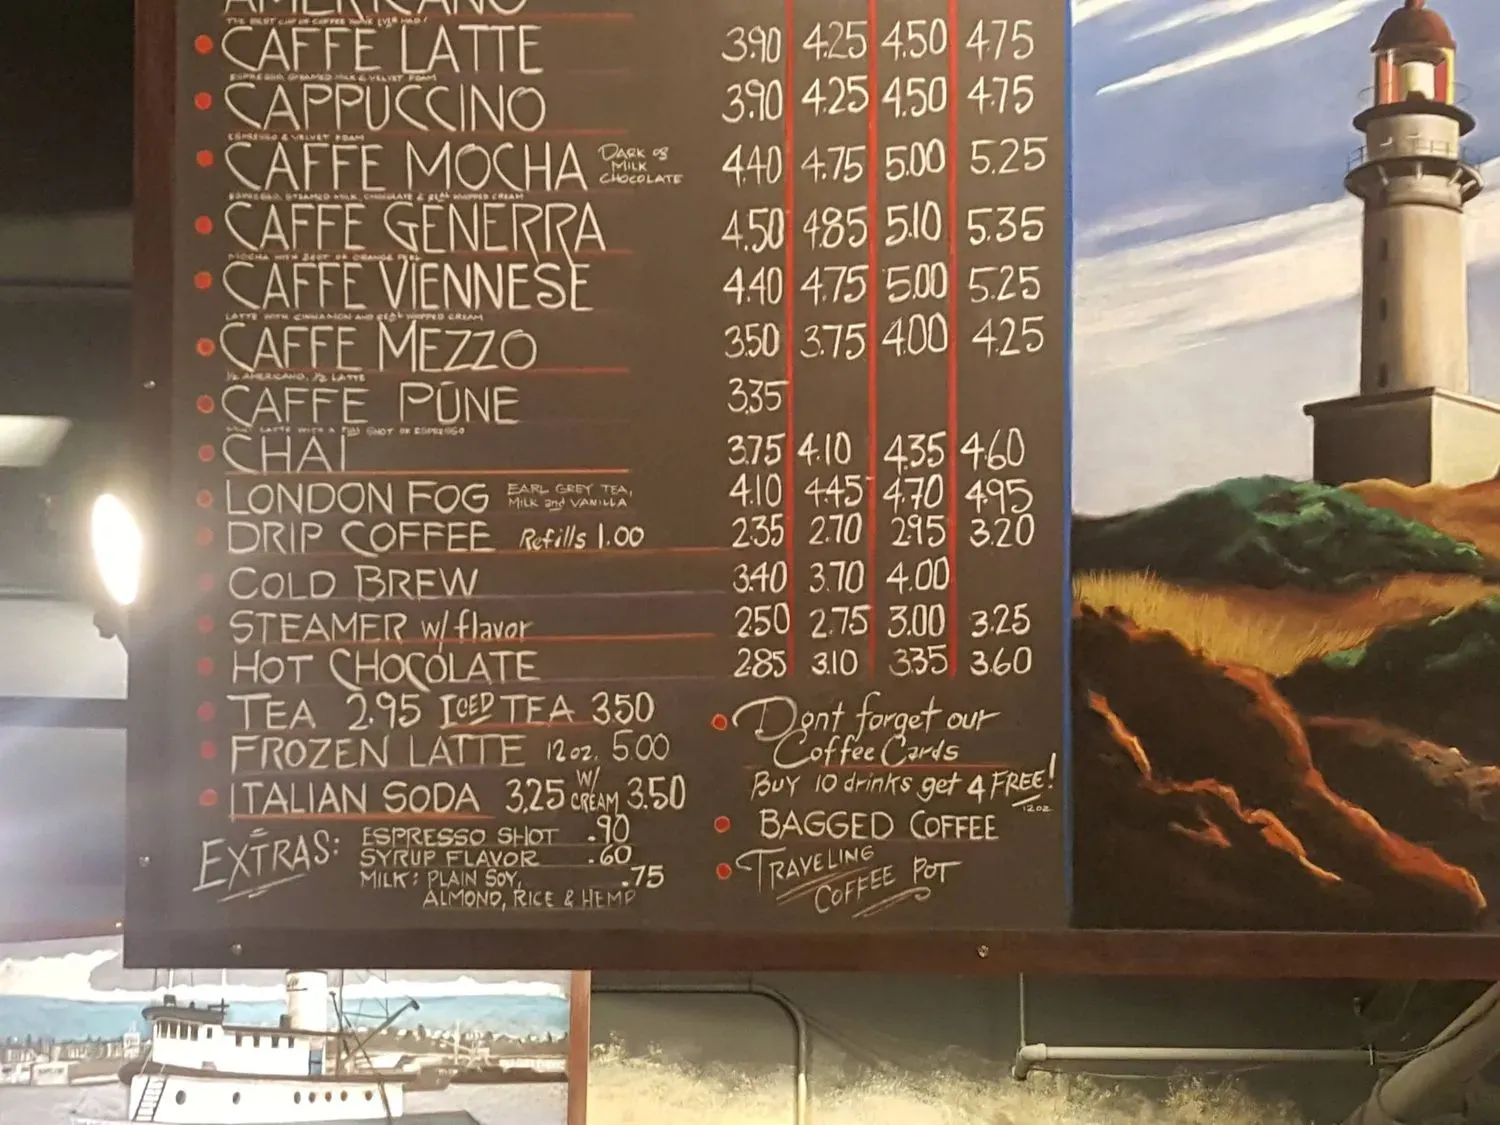 AMERICANO
THE BEST CUP OF COFFEE YOU'VE EVER HAD!
CAFFE LATTE 3.90 4.25 4.50 4.75
ESPRESSO, STEAMED MILK & VELVET FOAM
CAPPUCCINO 3.90 4.25 4.50 4.75
ESPRESSO & VELVET FOAM
CAFFE MOCHA DARK or MILK CHOCOLATE 4.40 4.75 5.00 5.25
ESPRESSO, STEAMED MILK, CHOCOLATE & REAL WHIPPED CREAM
CAFFE GENERRA 4.50 4.85 5.10 5.35
MOCHA WITH ZEST OF ORANGE PEEL
CAFFE VIENNESE 4.40 4.75 5.00 5.25
LATTE WITH CINNAMON AND REAL WHIPPED CREAM
CAFFE MEZZO 3.50 3.75 4.00 4.25
1/2 AMERICANO, 1/2 LATTE
CAFFE PŪNE 3.35
MINI LATTE WITH A FULL SHOT OF ESPRESSO
CHAI 3.75 4.10 4.35 4.60
LONDON FOG EARL GREY TEA, MILK and VANILLA 4.10 4.45 4.70 4.95
DRIP COFFEE Refills 1.00 2.35 2.70 2.95 3.20
COLD BREW 3.40 3.70 4.00
STEAMER w/ flavor 2.50 2.75 3.00 3.25
HOT CHOCOLATE 2.85 3.10 3.35 3.60
TEA 2.95 ICED TEA 3.50
FROZEN LATTE 12oz. 5.00
ITALIAN SODA 3.25 W/ CREAM 3.50
EXTRAS: ESPRESSO SHOT .90
SYRUP FLAVOR .60
MILK: PLAIN SOY, .75
ALMOND, RICE & HEMP
Dont forget our
Coffee Cards
BUY 10 drinks get 4 FREE!
12oz
BAGGED COFFEE
TRAVELING
COFFEE POT